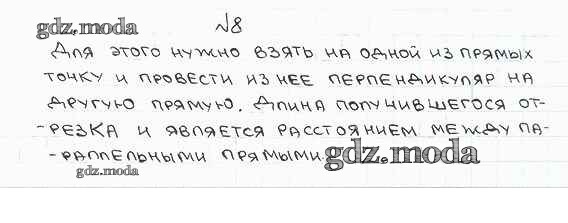 №8
gdz.moda
Для этого нужно взять на одной из прямых
точку и провести из нее перпендикуляр на
другую прямую. Длина получившегося от-
-резка и является расстоянием между па-
-раллельными прямыми.
gdz.moda
gdz.moda